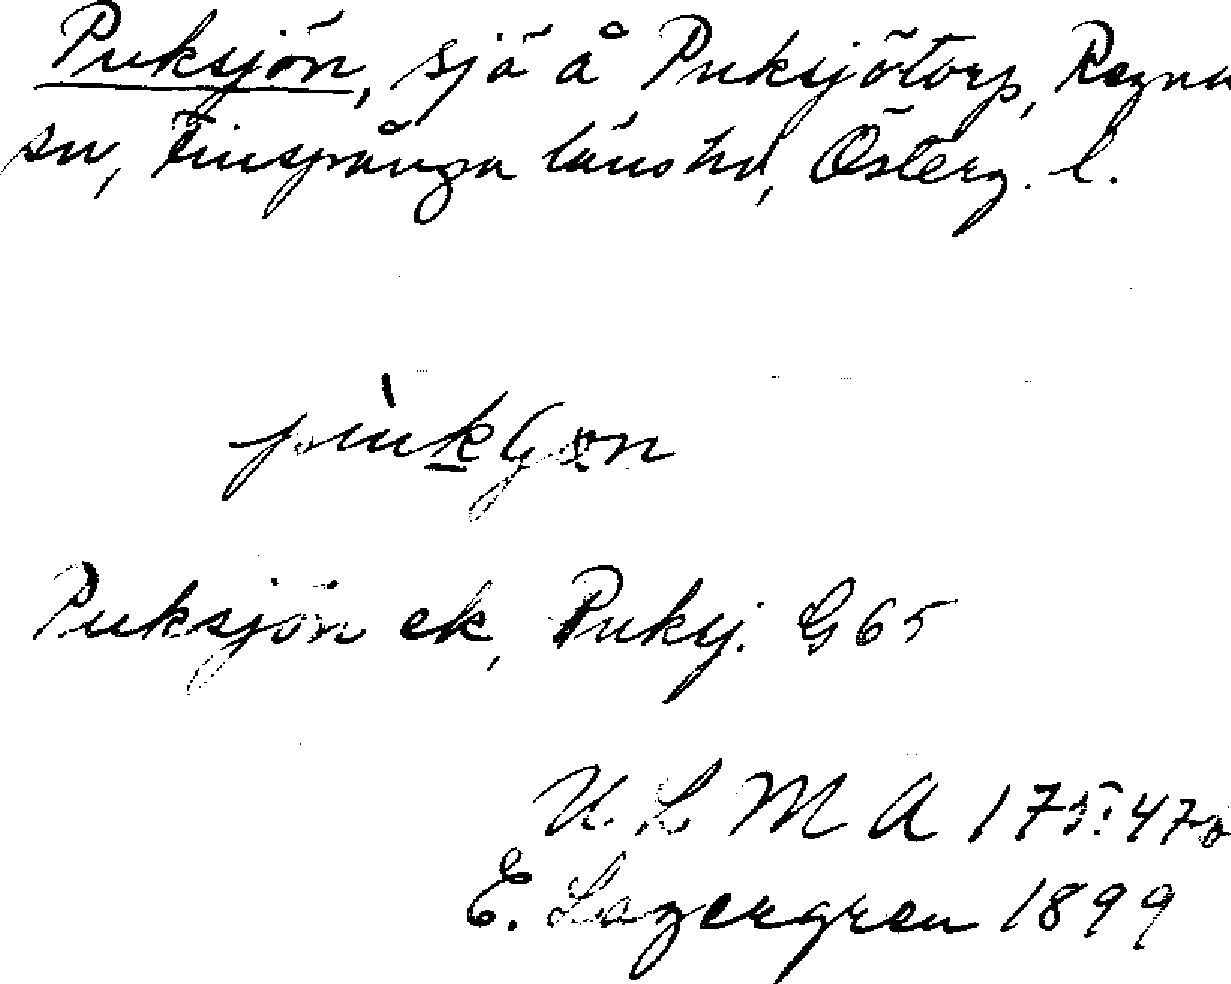 Puksjön, sjö å Puksjötorp, Regna
sn, Finspånga länshd, Österg. l.
Puksjön ek, Puksj. G65
U. L M A 175:47a
E. Lagergren 1899